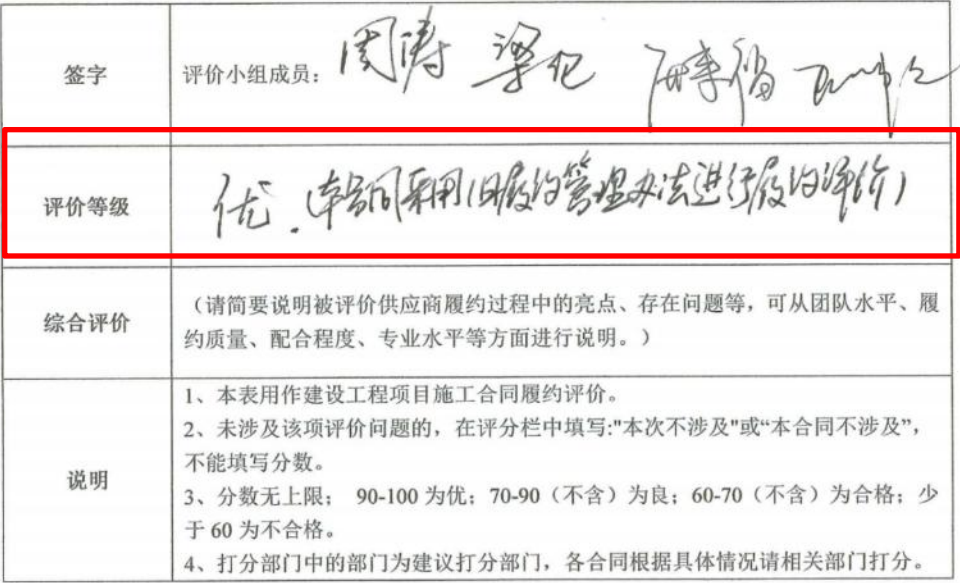 签字
评价小组成员：周涛 梁纪
评价等级
优．（本合同采用旧履约管理办法进行履约评价）
综合评价
（请简要说明被评价供应商履约过程中的亮点、存在问题等，可从团队水平、履
约质量、配合程度、专业水平等方面进行说明。）
说明
1、本表用作建设工程项目施工合同履约评价。
2、未涉及该项评价问题的，在评分栏中填写:"本次不涉及"或“本合同不涉及”，
不能填写分数。
3、分数无上限； 90-100 为优；70-90（不含）为良；60-70（不含）为合格；少
于 60 为不合格。
4、打分部门中的部门为建议打分部门，各合同根据具体情况请相关部门打分。